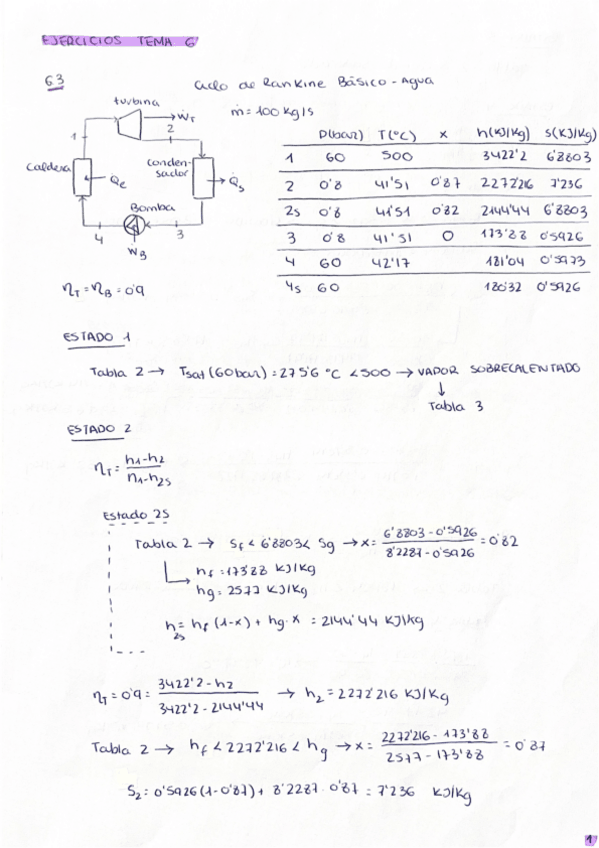 EJERCICIOS TEMA 6
6.3
Ciclo de Rankine Básico - Agua
turbina
ẆT
ṁ = 100 kg/s
1
2
Caldera
Q̇e
conden-
sador
Q̇s
Bomba
4
3
ẆB
ηT = ηB = 0'9
P(bar) T(°C) x h(KJ/Kg) s(KJ/Kg)
1 60 500 3422'2 6'8803
2 0'8 41'51 0'87 2272'216 7'236
2s 0'8 41'51 0'82 2144'44 6'8803
3 0'8 41'51 0 173'88 0'5926
4 60 42'17 181'04 0'5973
4s 60 180'32 0'5926
ESTADO 1
Tabla 2 → Tsat (60bar) = 275'6 °C < 500 → VAPOR SOBRECALENTADO
↓
Tabla 3
ESTADO 2
ηT = h1-h2 / h1-h2s
Estado 2S
Tabla 2 → Sf < 6'8803 < Sg → x = 6'8803 - 0'5926 / 8'2287 - 0'5926 = 0'82
hf = 173'88 KJ/Kg
hg = 2577 KJ/Kg
h2s = hf (1-x) + hg · x = 2144'44 KJ/kg
ηT = 0'9 = 3422'2 - h2 / 3422'2 - 2144'44 → h2 = 2272'216 KJ/Kg
Tabla 2 → hf < 2272'216 < hg → x = 2272'216 - 173'88 / 2577 - 173'88 = 0'87
S2 = 0'5926 (1-0'87) + 8'2287 · 0'87 = 7'236 KJ/Kg
1